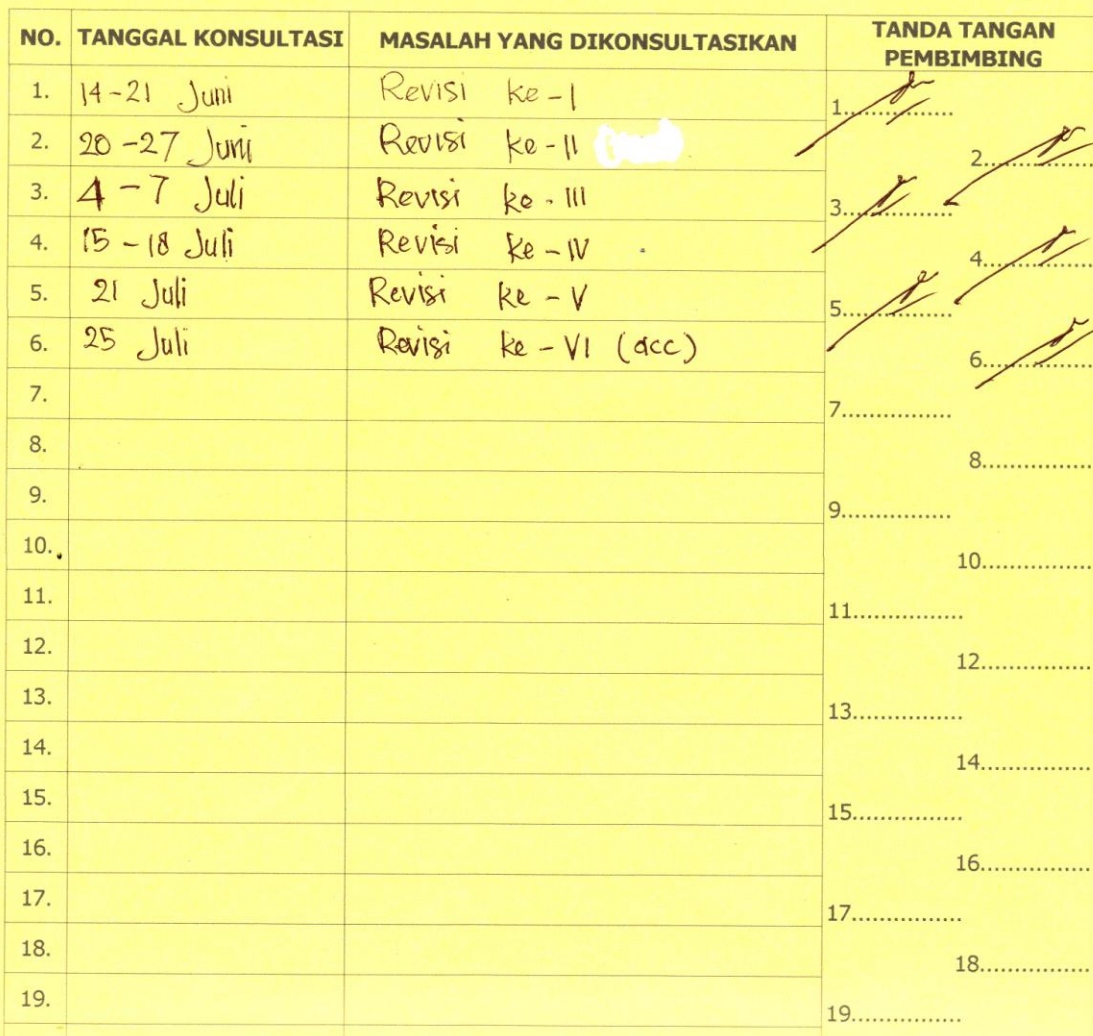 NO. TANGGAL KONSULTASI MASALAH YANG DIKONSULTASIKAN TANDA TANGAN PEMBIMBING
1. 14-21 Juni Revisi ke-I 1................
2. 20-27 Juni Revisi ke-II 2................
3. 4-7 Juli Revisi ke-III 3................
4. 15-18 Juli Revisi ke-IV 4................
5. 21 Juli Revisi ke-V 5................
6. 25 Juli Revisi ke-VI (acc) 6................
7. 7................
8. 8................
9. 9................
10. 10................
11. 11................
12. 12................
13. 13................
14. 14................
15. 15................
16. 16................
17. 17................
18. 18................
19. 19................